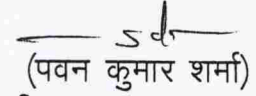 sd
(पवन कुमार शर्मा)